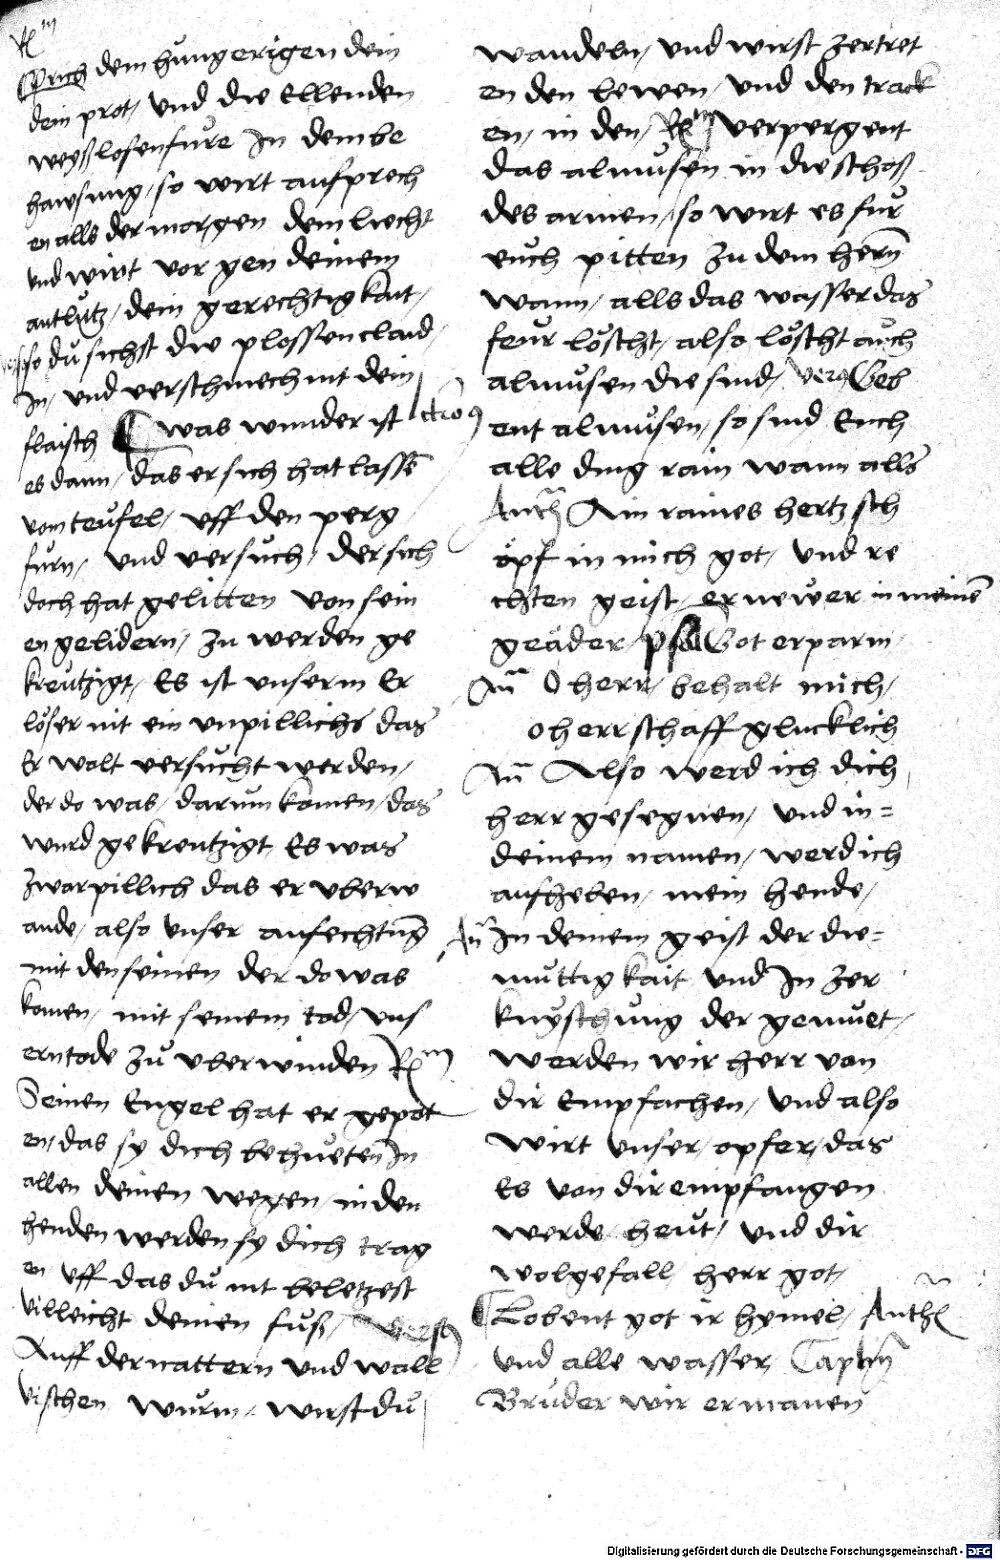 Rm
Sprich dem hungerigen dein
dein prot / und die Ellenden
weyslosen fure In dein be
hawsung / so wirt aufprech
en alls der morgen dein liecht
und wirt vor gen deinem
antlutz / dein gerechtigkait /
so du sichst die plossen claid
In / und verschmech nit dein
flaisch was wunder ist lctio 9
es dann / das er sich hat lassen
vom teufel / uff den perg
furn / und versuch / der sich
doch hat gelitten von sein
en gelidern / zu werden ge
kreutzigt / Es ist unserm Er
löser nit ein unpillichs das
Er wolt versucht werden /
der do was / darum komen / das
wurd gekreutzigt Es was
zwar pillich das er uberw
ande / also unser anfechtung
mit den seinen der do was
komen / mit seinem tod / uns
ern tode zu uberwinden Rm
Seinen Engel hat er gepot
en / das sy dich behueten In
allen deinen wegen / in den
henden werden sy dich trag
en uff das du nit beletzest
villeicht deinen fuß / vers9
Auff der nattern und wall
vischen wurm / wirst du
wandeln / und wirst zertret
en den lewen / und den track
en / in den / Rm verpergent
das almusen in die schoß
des armen / so wirt es fur
euch pitten zu dem hern
wann / alls das wasser das
feur löscht / also löscht auch
almusen die sind / vers Geb
ent almusen / so sind Euch
alle ding rain wann alls
Anth Ain raines hertz sch
öpf in mich got / und re
chten geist / ernewer in meinē
geäder / psal Got erparm /
An O herr / behalt mich /
o herr schaff glucklich
An Also werd ich dich
herr gesegnen / und in=
deinem namen / werd ich
aufheben / mein hende /
An In deinem geist der die=
muttigkait und In zer
knyschung der gemuet /
werden wir herr von
dir Empfachen / und also
wirt unser / opfer / das
Es von dir empfangen
werde heut / und dir
wolgefall herr got /
Lobent got ir hymel / Anth
und alle wasser Captm
Bruder wir ermanen
Digitalisierung gefördert durch die Deutsche Forschungsgemeinschaft - DFG